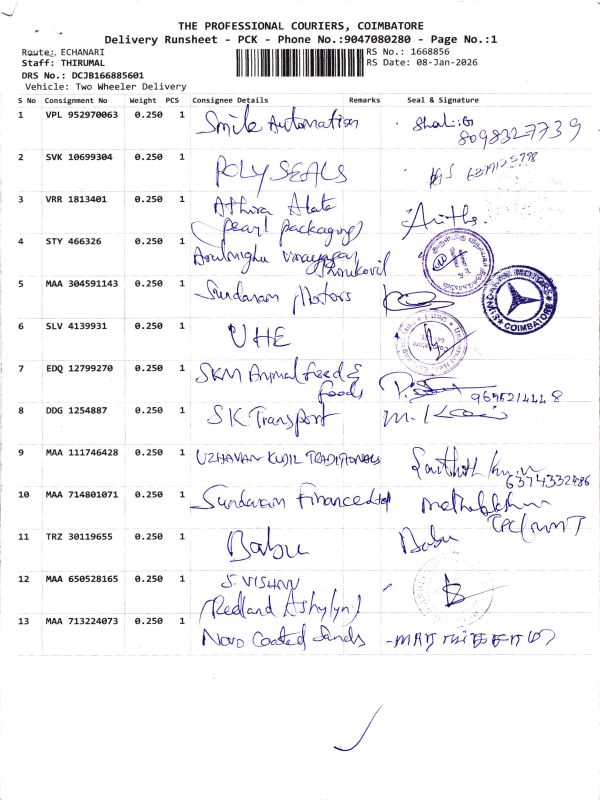 THE PROFESSIONAL COURIERS, COIMBATORE
Delivery Runsheet - PCK - Phone No.:9047080280 - Page No.:1
Route: ECHANARI
RS No.: 1668856
Staff: THIRUMAL
RS Date: 08-Jan-2026
DRS No.: DCJB166885601
Vehicle: Two Wheeler Delivery
S No Consignment No Weight PCS Consignee Details Remarks Seal & Signature
1 VPL 952970063 0.250 1 Smile Automation 8098327739
2 SVK 10699304 0.250 1 POLY SEALS
3 VRR 1813401 0.250 1 Athira
(pearl packaging)
4 STY 466326 0.250 1 Arulmighu Vinayagar
Thirukovil
5 MAA 304591143 0.250 1 Sundaram Motors
COIMBATORE
6 SLV 4139931 0.250 1 UHE
7 EDQ 12799270 0.250 1 SKM Animal feed &
foods
8 DDG 1254887 0.250 1 SK Transport
9 MAA 111746428 0.250 1 UZHAVAN KUDIL TRADITIONALS
6374332486
10 MAA 714801071 0.250 1 Sundaram Finance Ltd
11 TRZ 30119655 0.250 1 Babu Babu
12 MAA 650528165 0.250 1 S. VISHNU
(Redland Ashylyn)
13 MAA 713224073 0.250 1 Novo Coated Sands